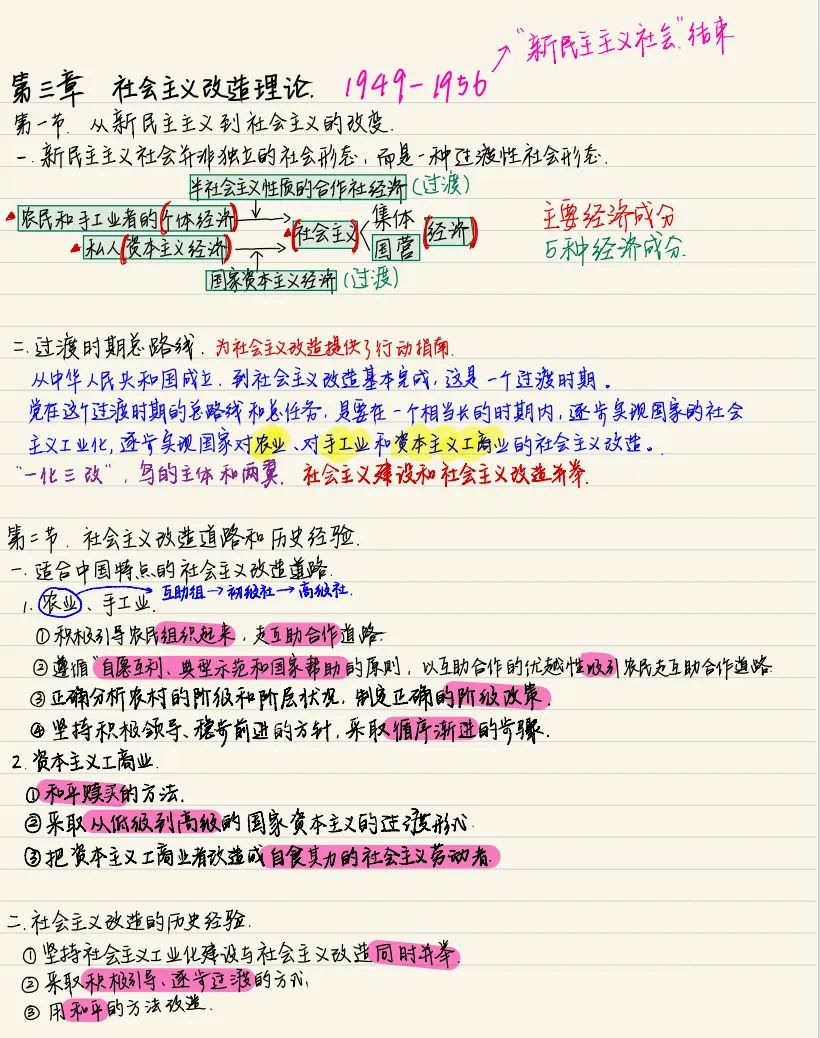 "新民主主义社会"结束
第三章 社会主义改造理论. 1949-1956
第一节. 从新民主主义到社会主义的改变.
一. 新民主主义社会并非独立的社会形态, 而是一种过渡性社会形态.
半社会主义性质的合作社经济(过渡)
农民和手工业者的(个体经济) 集体 主要经济成分
(社会主义 经济)
私人(资本主义经济) 国营 5种经济成分.
国家资本主义经济(过渡)
二. 过渡时期总路线. 为社会主义改造提供了行动指南.
从中华人民共和国成立, 到社会主义改造基本完成, 这是一个过渡时期。
党在这个过渡时期的总路线和总任务, 是要在一个相当长的时期内, 逐步实现国家的社会
主义工业化, 逐步实现国家对农业、对手工业和资本主义工商业的社会主义改造。.
"一化三改", 鸟的主体和两翼. 社会主义建设和社会主义改造并举.
第二节. 社会主义改造道路和历史经验.
一. 适合中国特点的社会主义改造道路.
1. 农业、手工业. 互助组→初级社→高级社.
①积极引导农民组织起来, 走互助合作道路.
②遵循"自愿互利、典型示范和国家帮助的原则, 以互助合作的优越性吸引农民走互助合作道路
③正确分析农村的阶级和阶层状况, 制定正确的阶级政策.
④坚持积极领导、稳步前进的方针, 采取循序渐进的步骤.
2. 资本主义工商业.
①和平赎买的方法.
②采取从低级到高级的国家资本主义的过渡形式.
③把资本主义工商业者改造成自食其力的社会主义劳动者.
二. 社会主义改造的历史经验.
①坚持社会主义工业化建设与社会主义改造同时并举.
②采取积极引导、逐步过渡的方式.
③用和平的方法改造.